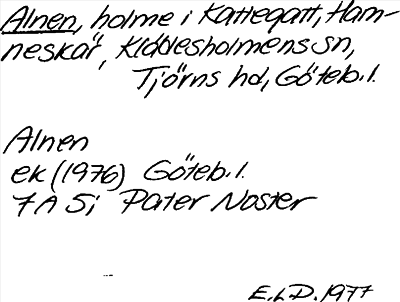 Alnen, holme i Kattegatt, Ham-
neskär, Klädesholmens sn,
Tjörns hd, Göteb. l.
Alnen
ek (1976) Göteb. l.
7A 5i Pater Noster
E.L D. 1977